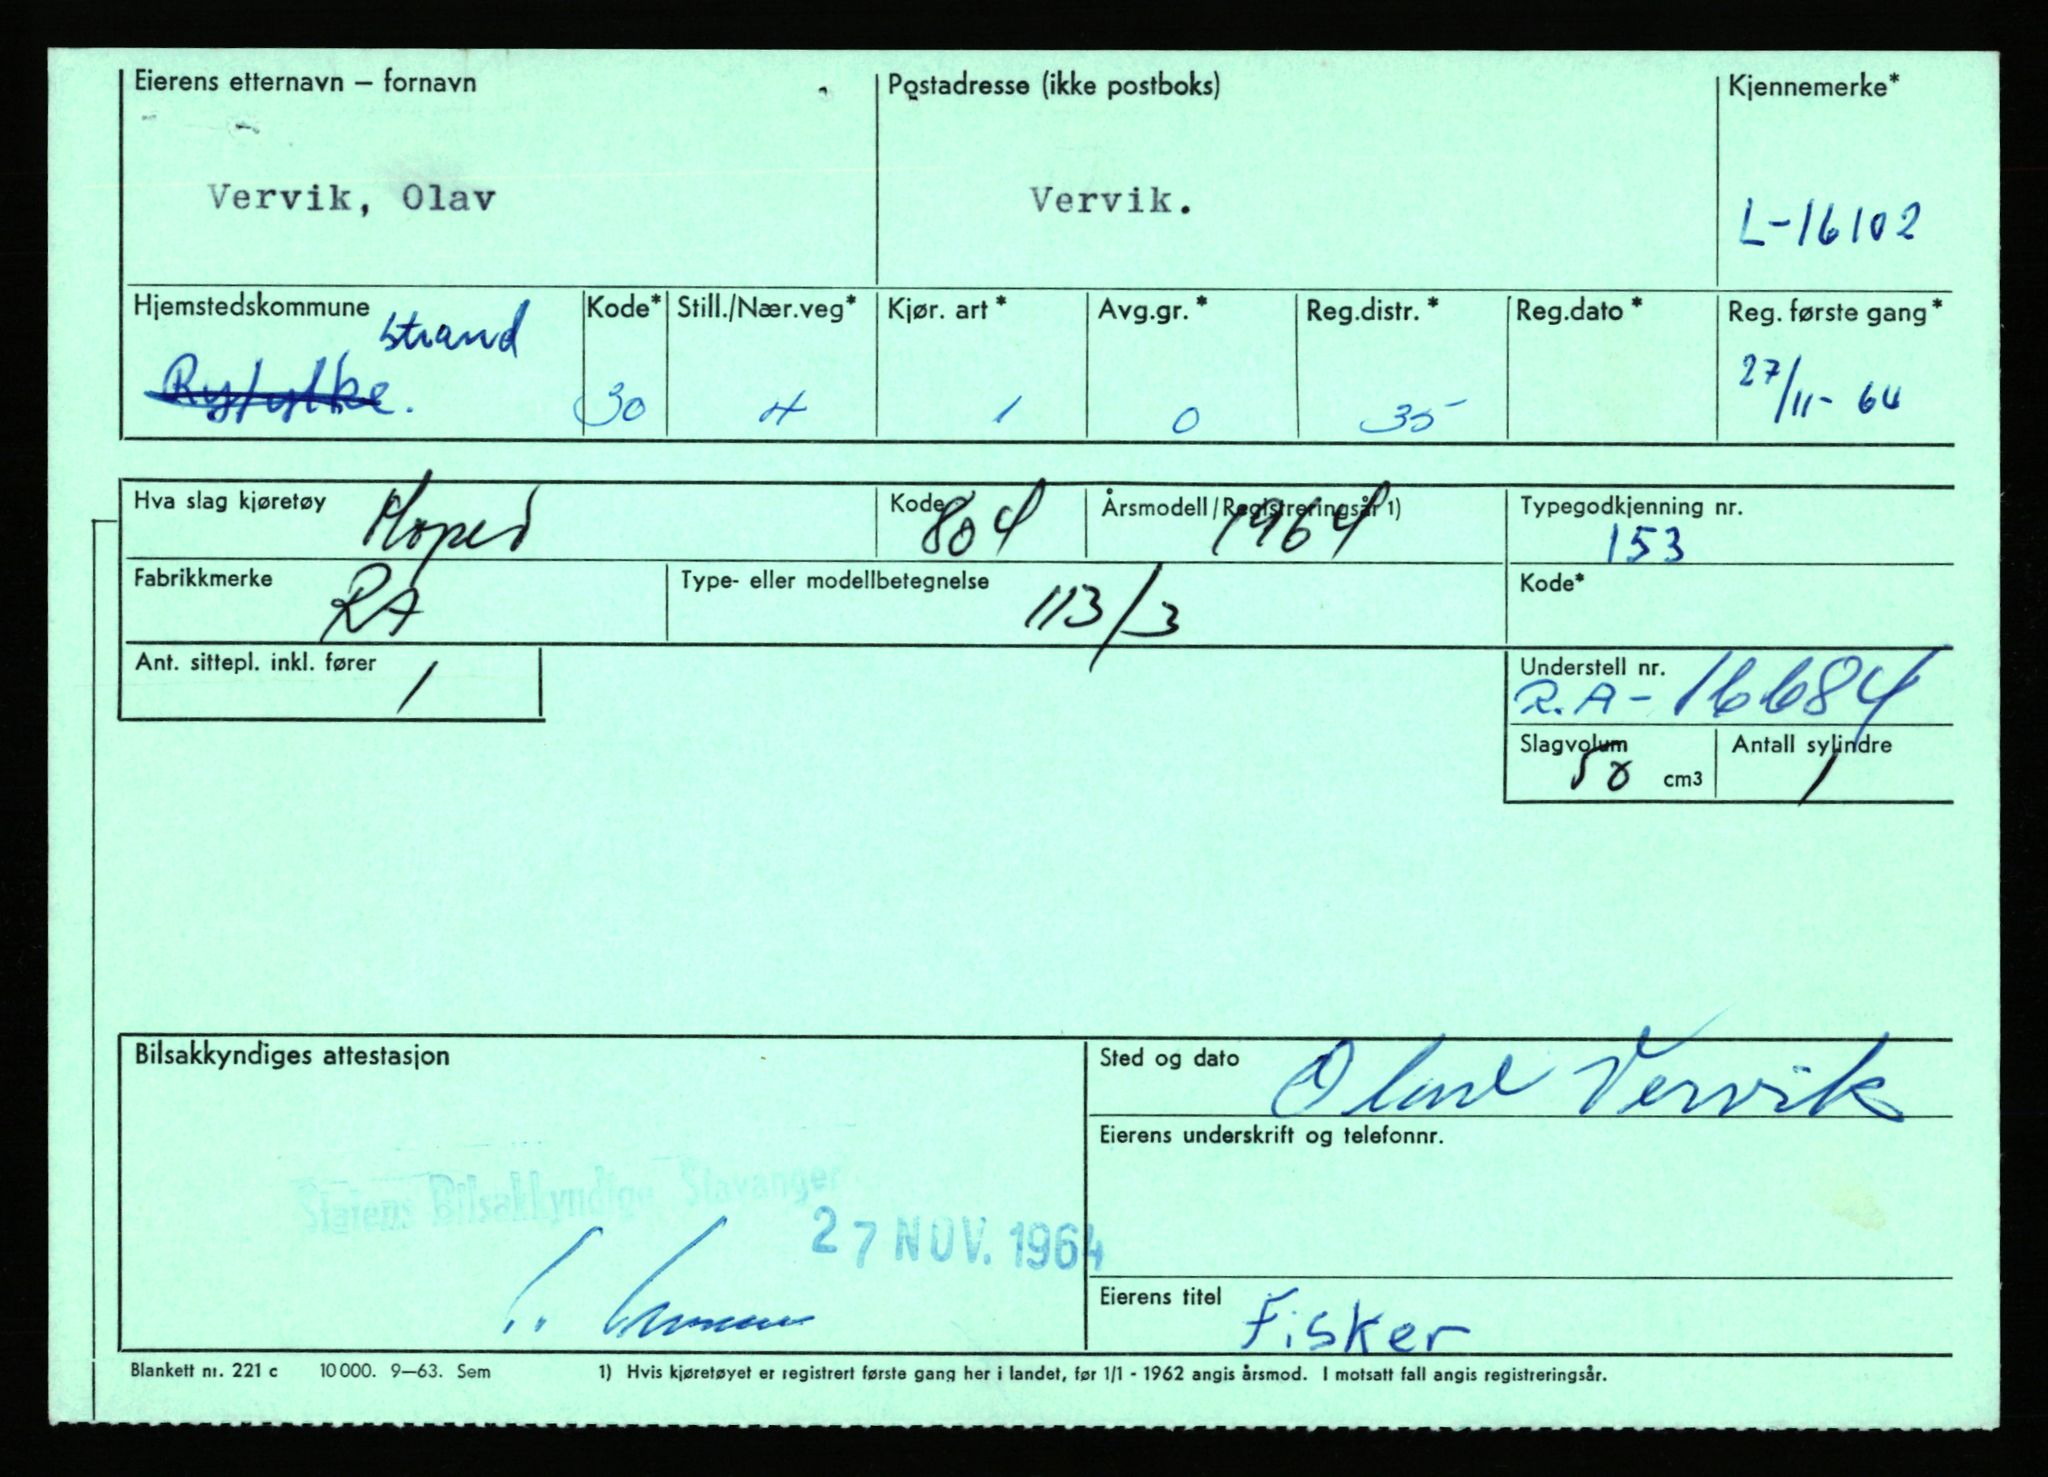 Eierens etternavn – fornavn
Postadresse (ikke postboks)
Kjennemerke*
Vervik, Olav
Vervik.
L-16102
Hjemstedskommune
Kode*
Still./Nær.veg*
Kjør. art *
Avg.gr. *
Reg.distr. *
Reg.dato *
Reg. første gang *
Strand
Ryfylke.
30
4
1
0
35
27/11- 64
Hva slag kjøretøy
Moped
Kode
804
Årsmodell/Registreringsår 1)
1964
Typegodkjenning nr.
153
Fabrikkmerke
RA
Type- eller modellbetegnelse
113/3
Kode*
Ant. sittepl. inkl. fører
1
Understell nr.
R.A-16684
Slagvolum
50 cm3
Antall sylindre
1
Bilsakkyndiges attestasjon
Statens Bilsakkyndige Stavanger
27 NOV. 1964
Sted og dato
Olav Vervik
Eierens underskrift og telefonnr.
Eierens titel
Fisker
Blankett nr. 221 c 10 000. 9–63. Sem
1) Hvis kjøretøyet er registrert første gang her i landet, før 1/1 - 1962 angis årsmod. I motsatt fall angis registreringsår.